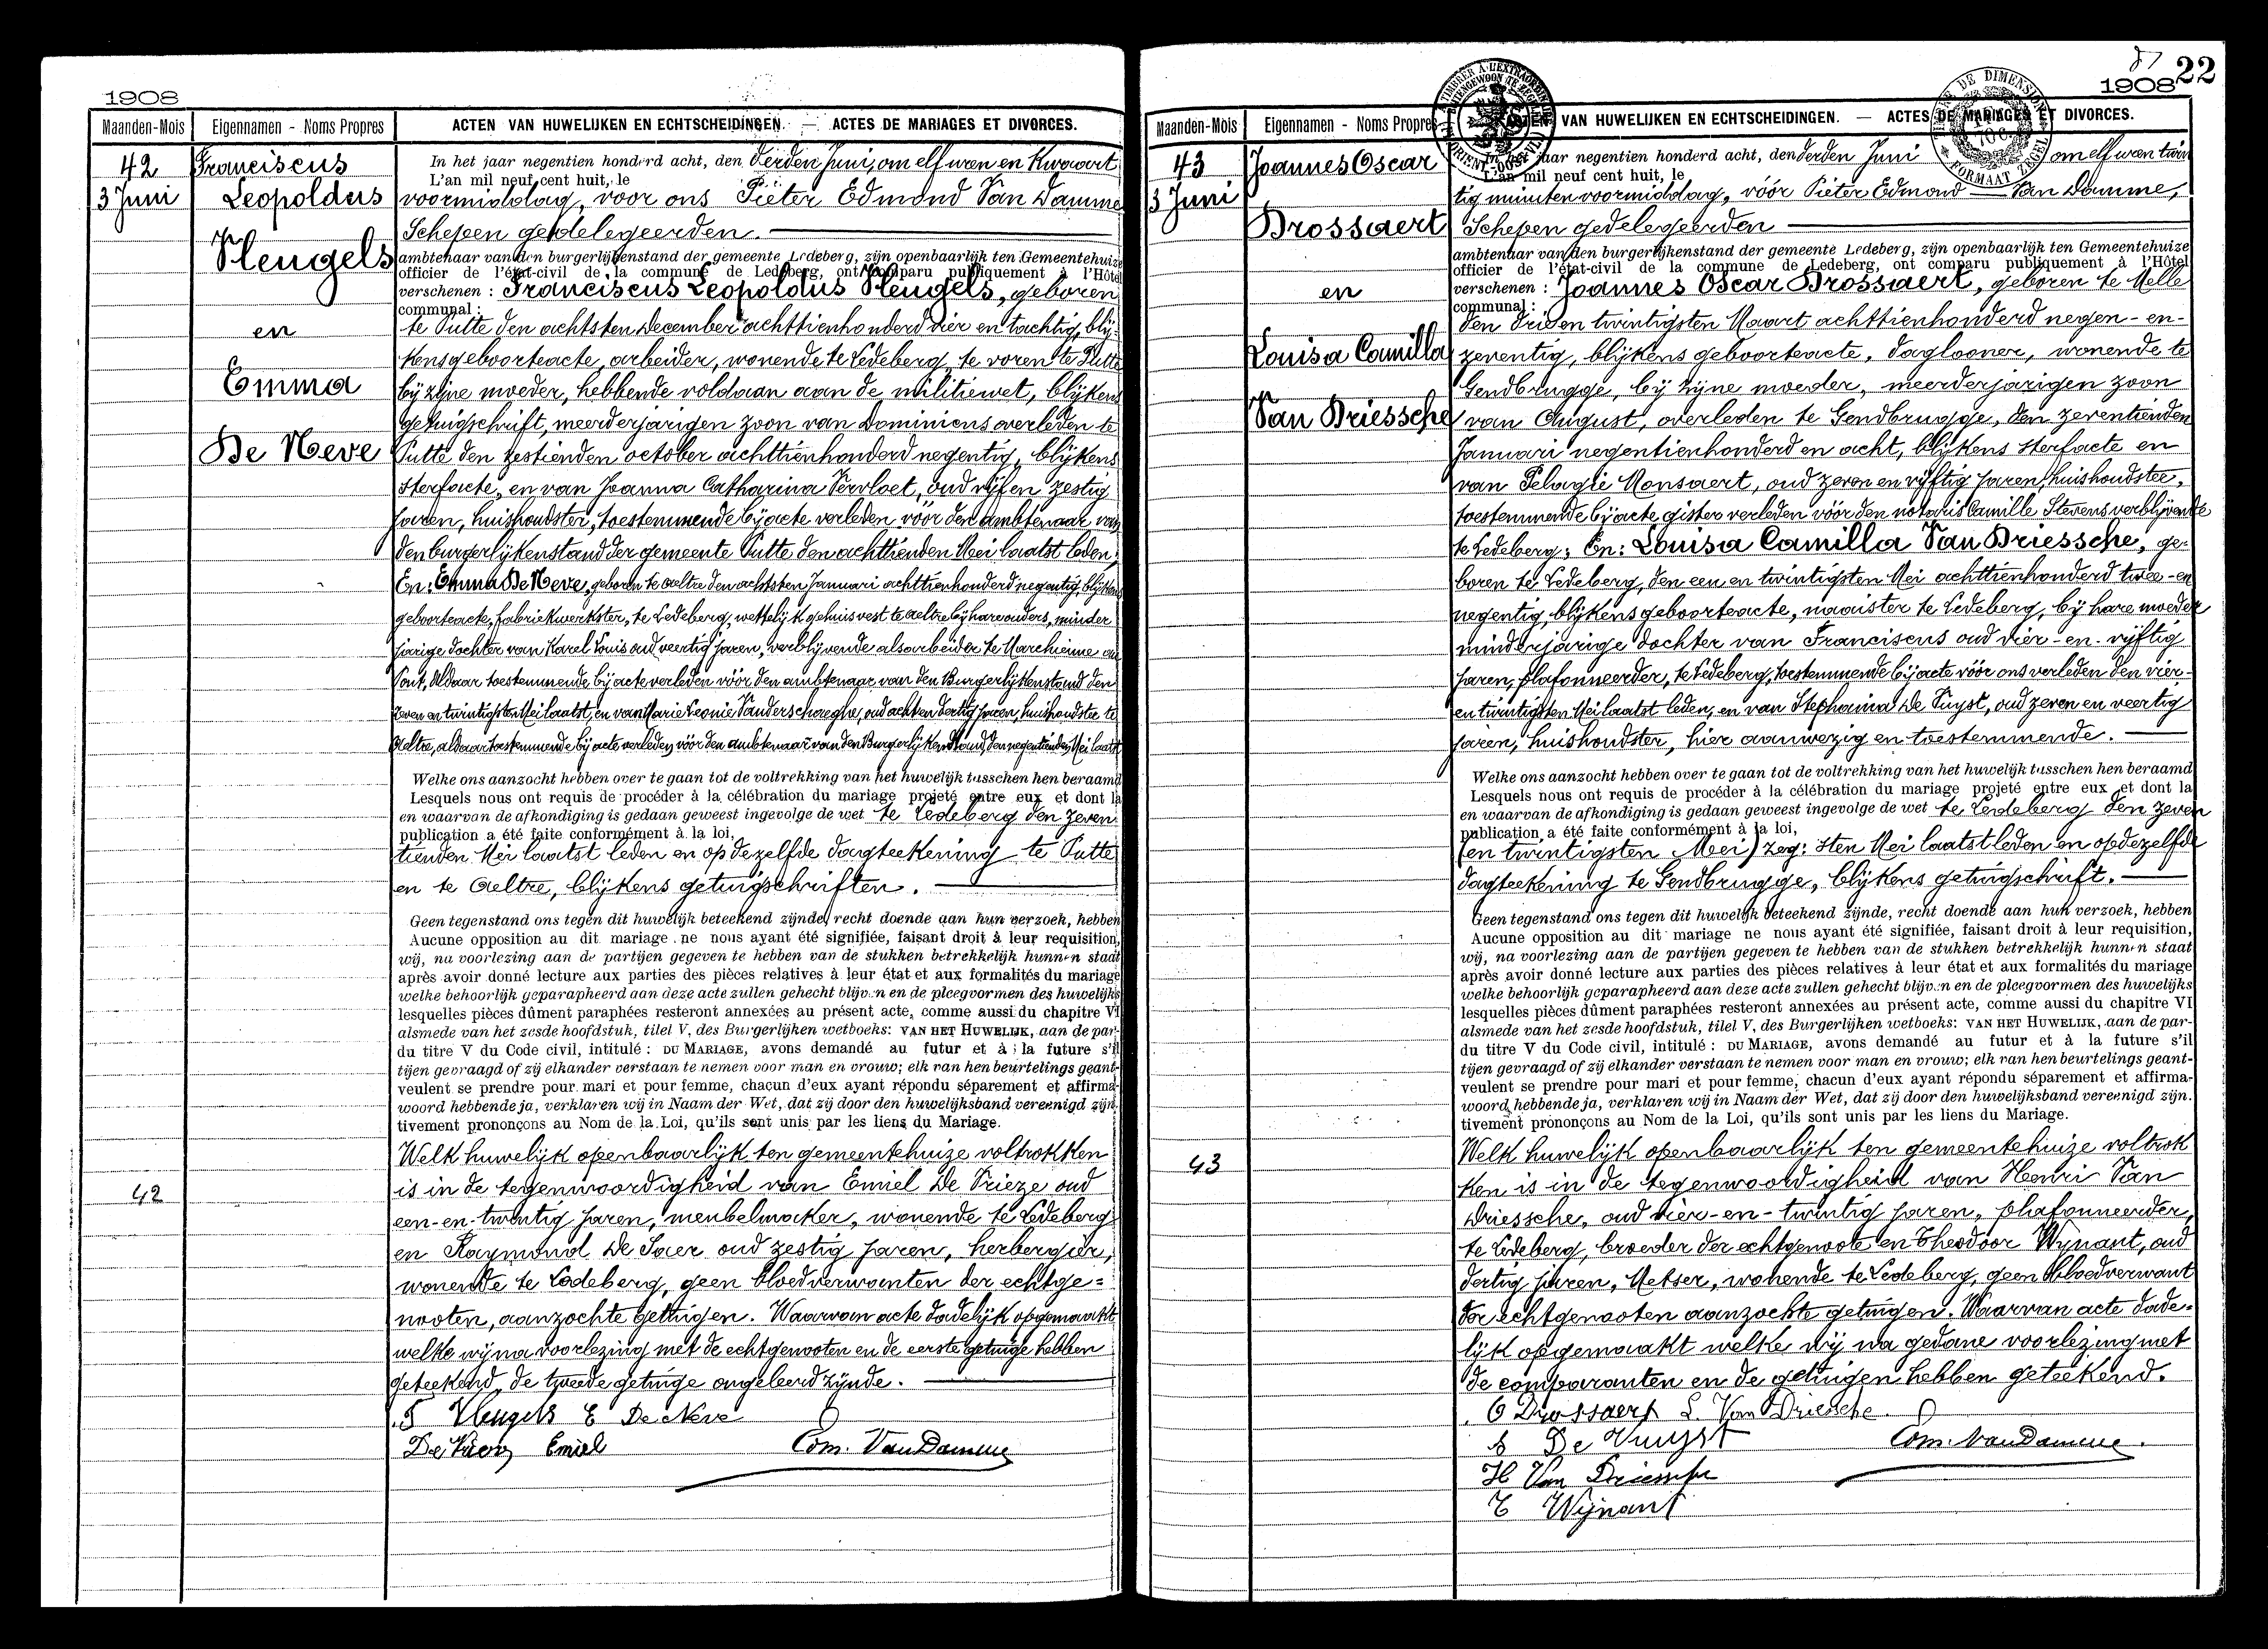 1908
Maanden-Mois
Eigennamen - Noms Propres
ACTEN VAN HUWELIJKEN EN ECHTSCHEIDINGEN. — ACTES DE MARIAGES ET DIVORCES.
42
3 Juni
Franciscus
Leopoldus
Hengels
en
Emma
De Neve
In het jaar negentien honderd acht, den derden Juni, om elf uren en kwaart
L'an mil neuf cent huit, le
voormiddag, voor ons Pieter Edmond Van Damme
Schepen gedelegeerden.
ambtenaar van den burgerlijkenstand der gemeente Ledeberg, zijn openbaarlijk ten Gemeentehuize
officier de l'état-civil de la commune de Ledeberg, ont comparu publiquement à l'Hôtel
verschenen : Franciscus Leopoldus Hengels, geboren
communal :
te Putte den achtsten December achttienhonderd vier en tachtig, blij-
kens geboorteacte, arbeider, wonende te Ledeberg, te voren te Putte
bij zijne moeder, hebbende voldaan aan de militiewet, blijkens
getuigschrift, meerderjarigen zoon van Dominicus overleden te
Putte den zestienden october achttienhonderd negentig, blijkens
sterfacte, en van Joanna Catharina Vervloet, oud vijf en zestig
jaren, huishoudster, toestemmende bij acte verleden vóór den ambtenaar van
den burgerlijkenstand der gemeente Putte den achttienden Mei laatst leden;
En: Emma De Neve, geboren te Aeltre den achtsten Januari achttienhonderd negentig, blijkens
geboorteacte, fabriekwerkster, te Ledeberg, wettelijk gehuisvest te Aeltre bij hare ouders, minder
jarige dochter van Karel Louis oud veertig jaren, verblijvende als arbeider te Marchienne au
Pont, aldaar toestemmende bij acte verleden vóór den ambtenaar van den Burgerlijkenstand den
zeven en twintigsten Mei laatst, en van Marie Leonie Vanderschaeghe, oud acht en dertig jaren, huishoudster te
Aeltre, aldaar toestemmende bij acte verleden vóór den ambtenaar van den Burgerlijkenstand, den negentienden Mei laatst
Welke ons aanzocht hebben over te gaan tot de voltrekking van het huwelijk tusschen hen beraamd
Lesquels nous ont requis de procéder à la célébration du mariage projeté entre eux et dont la
en waarvan de afkondiging is gedaan geweest ingevolge de wet te Ledeberg den zeven
publication a été faite conformément à la loi,
tienden Mei laatst leden en op dezelfde dagteekening te Putte
en te Aeltre, blijkens getuigschriften.
Geen tegenstand ons tegen dit huwelijk beteekend zijnde, recht doende aan hun verzoek, hebben
Aucune opposition au dit mariage ne nous ayant été signifiée, faisant droit à leur requisition,
wij, na voorlezing aan de partijen gegeven te hebben van de stukken betrekkelijk hunnen staat
après avoir donné lecture aux parties des pièces relatives à leur état et aux formalités du mariage
welke behoorlijk geparapheerd aan deze acte zullen gehecht blijven en de pleegvormen des huwelijks
lesquelles pièces dûment paraphées resteront annexées au présent acte, comme aussi du chapitre VI
alsmede van het zesde hoofdstuk, titel V, des Burgerlijken wetboeks: VAN HET HUWELIJK, aan de par-
du titre V du Code civil, intitulé : DU MARIAGE, avons demandé au futur et à la future s'il
tijen gevraagd of zij elkander verstaan te nemen voor man en vrouw; elk van hen beurtelings geant-
veulent se prendre pour mari et pour femme, chacun d'eux ayant répondu séparement et affirma-
woord hebbende ja, verklaren wij in Naam der Wet, dat zij door den huwelijksband vereenigd zijn.
tivement prononçons au Nom de la Loi, qu'ils sont unis par les liens du Mariage.
42
Welk huwelijk openbaarlijk ten gemeentehuize voltrokken
is in de tegenwoordigheid van Emiel De Vrieze oud
een-en-twintig jaren, meubelmaker, wonende te Ledeberg
en Raymond De Saer oud zestig jaren, herbergier,
wonende te Ledeberg, geen bloedverwanten der echtge=
nooten, aanzochte getuigen. Waarvan acte dadelijk opgemaakt
welke wij na voorlezing met de echtgenooten en de eerste getuige hebben
geteekend, de tweede getuige ongeleerd zijnde.
F Hengels E De Neve
Emiel
Edm. Van Damme
87
22
1908
Maanden-Mois
Eigennamen - Noms Propres
ACTEN VAN HUWELIJKEN EN ECHTSCHEIDINGEN. — ACTES DE MARIAGES ET DIVORCES.
43
3 Juni
Joannes Oscar
Drossaert
en
Louisa Camilla
Van Driessche
In het jaar negentien honderd acht, den derden Juni om elf uren twin
L'an mil neuf cent huit, le
tig minuten voormiddag, vóór Pieter Edmond Van Damme,
Schepen gedelegeerden
ambtenaar van den burgerlijkenstand der gemeente Ledeberg, zijn openbaarlijk ten Gemeentehuize
officier de l'état-civil de la commune de Ledeberg, ont comparu publiquement à l'Hôtel
verschenen : Joannes Oscar Drossaert, geboren te Melle
communal :
den drie en twintigsten Maart achttienhonderd negen-en-
zeventig, blijkens geboorteacte, daglooner, wonende te
Gendbrugge, bij zijne moeder, meerderjarigen zoon
van August, overleden te Gendbrugge, den zeventienden
Januari negentienhonderd en acht, blijkens sterfacte en
van Pelagie Monsaert, oud zeven en vijftig jaren, huishoudster,
toestemmende bij acte gister verleden vóór den notaris Camille Stevens verblijvende
te Ledeberg; En: Louisa Camilla Van Driessche, ge-
boren te Ledeberg, den een en twintigsten Mei achttienhonderd twee-en
negentig, blijkens geboorteacte, naaister te Ledeberg, bij hare moeder
minderjarige dochter van Franciscus oud vier-en-vijftig
jaren, plafonneerder, te Ledeberg, toestemmende bij acte vóór ons verleden den vier-
en twintigsten Mei laatst leden, en van Stephania De Vuyst, oud zeven en veertig
jaren, huishoudster, hier aanwezig en toestemmende.
Welke ons aanzocht hebben over te gaan tot de voltrekking van het huwelijk tusschen hen beraamd
Lesquels nous ont requis de procéder à la célébration du mariage projeté entre eux et dont la
en waarvan de afkondiging is gedaan geweest ingevolge de wet te Ledeberg den zeven
publication a été faite conformément à la loi,
(en twintigsten Mei) zeg: sten Mei laatst leden en op dezelfde
dagteekening te Gendbrugge, blijkens getuigschrift.
Geen tegenstand ons tegen dit huwelijk beteekend zijnde, recht doende aan hun verzoek, hebben
Aucune opposition au dit mariage ne nous ayant été signifiée, faisant droit à leur requisition,
wij, na voorlezing aan de partijen gegeven te hebben van de stukken betrekkelijk hunnen staat
après avoir donné lecture aux parties des pièces relatives à leur état et aux formalités du mariage
welke behoorlijk geparapheerd aan deze acte zullen gehecht blijven en de pleegvormen des huwelijks
lesquelles pièces dûment paraphées resteront annexées au présent acte, comme aussi du chapitre VI
alsmede van het zesde hoofdstuk, titel V, des Burgerlijken wetboeks: VAN HET HUWELIJK, aan de par-
du titre V du Code civil, intitulé : DU MARIAGE, avons demandé au futur et à la future s'il
tijen gevraagd of zij elkander verstaan te nemen voor man en vrouw; elk van hen beurtelings geant-
veulent se prendre pour mari et pour femme, chacun d'eux ayant répondu séparement et affirma-
woord hebbende ja, verklaren wij in Naam der Wet, dat zij door den huwelijksband vereenigd zijn.
tivement prononçons au Nom de la Loi, qu'ils sont unis par les liens du Mariage.
43
Welk huwelijk openbaarlijk ten gemeentehuize voltrok
ken is in de tegenwoordigheid van Henri Van
Driessche, oud vier-en-twintig jaren, plafonneerder,
te Ledeberg, broeder der echtgenoote en Theodoor Wijnant, oud
dertig jaren, Metser, wonende te Ledeberg, geen bloedverwant
der echtgenooten aanzochte getuigen. Waarvan acte dade-
lijk opgemaakt welke wij na gedane voorlezing met
de comparanten en de getuigen hebben geteekend.
O Drossaert L Van Driesche
S De Vuyst
Edm. Van Damme
H Van Driessche
T Wijnant